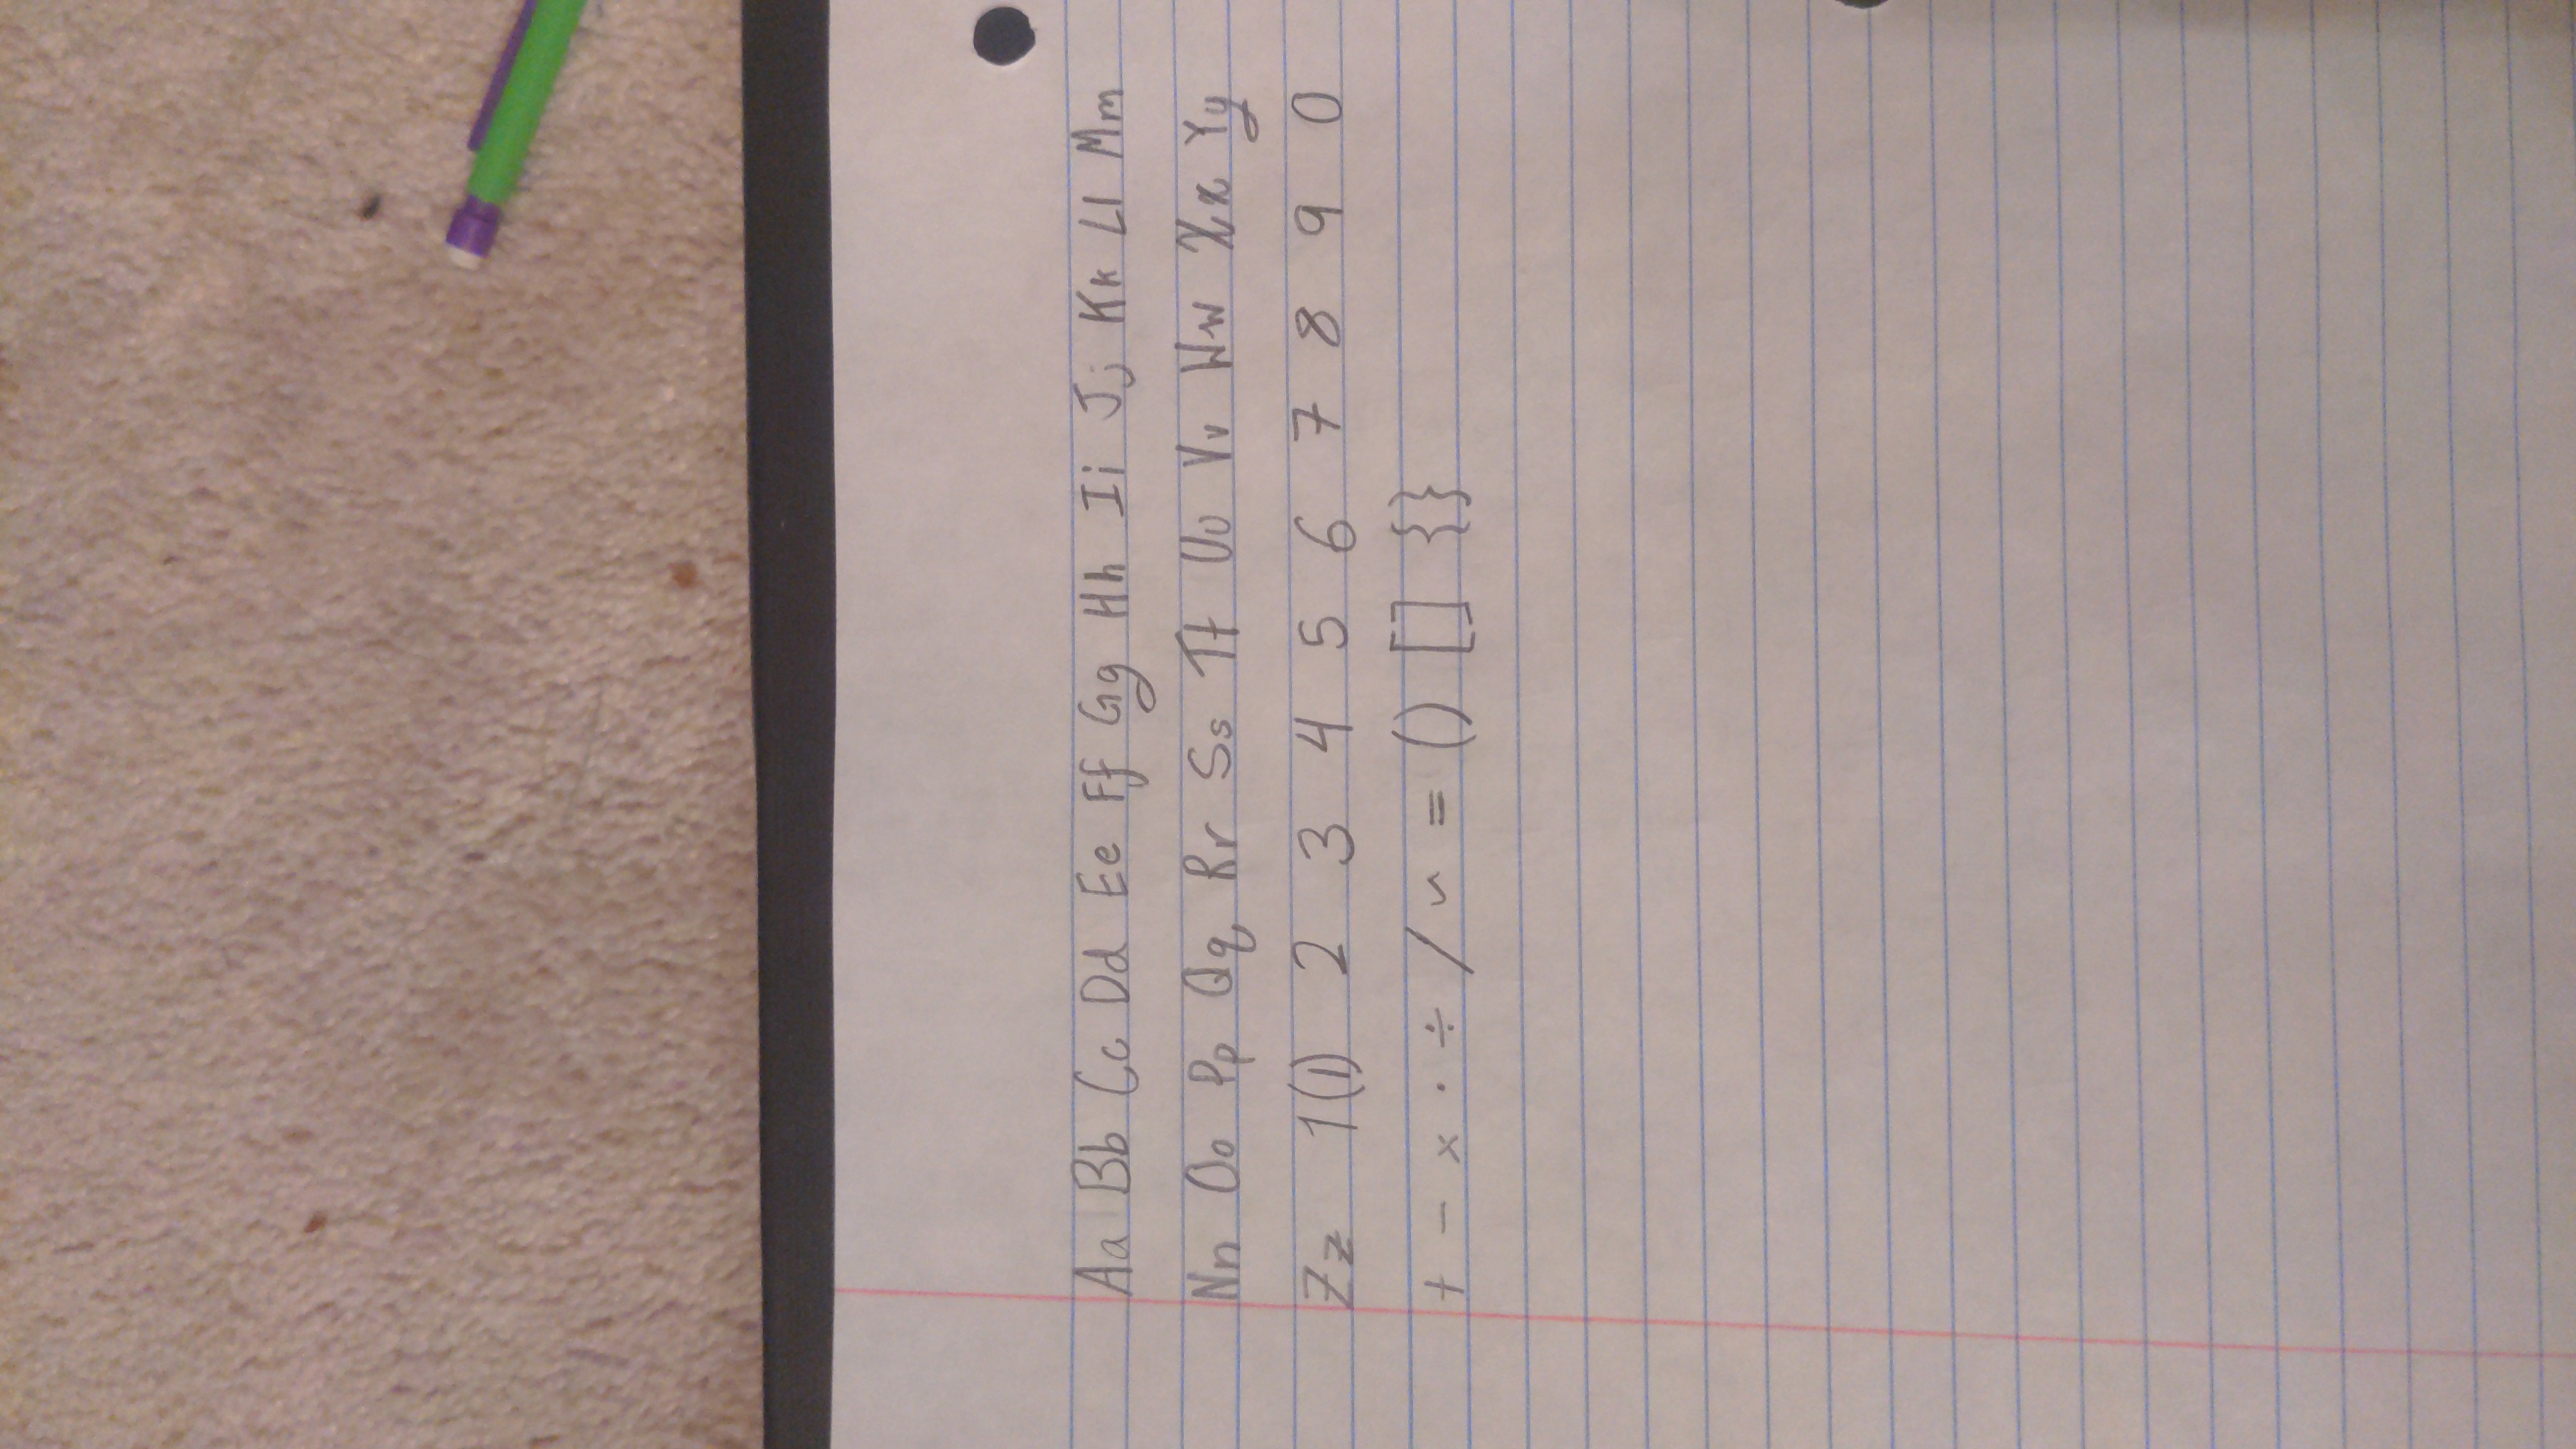 Aa Bb Cc Dd Ee Ff Gg Hh Ii Jj Kk Ll Mm
Nn Oo Pp Qq Rr Ss Tt Uu Vv Ww Xx Yy
Zz 1(1) 2 3 4 5 6 7 8 9 0
+ - × · ÷ / ~ = () [] {}